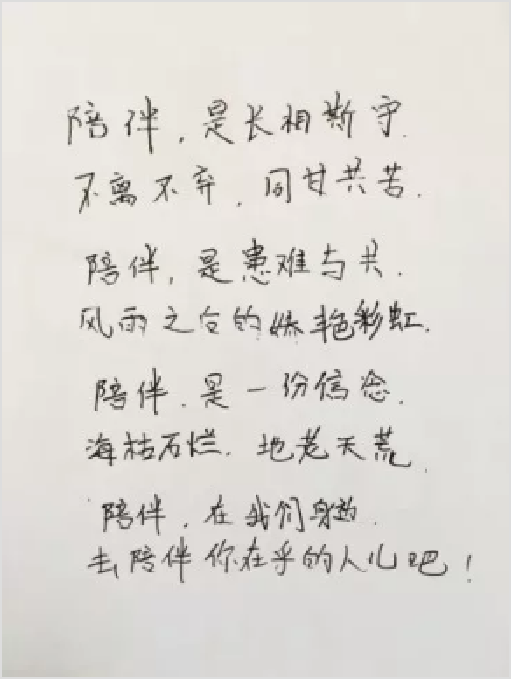 陪伴，是长相厮守.
不离不弃，同甘共苦.
陪伴，是患难与共.
风雨之后的娇艳彩虹.
陪伴.是一份信念.
海枯石烂.地老天荒.
陪伴，在我们身边.
去陪伴你在乎的人儿吧！